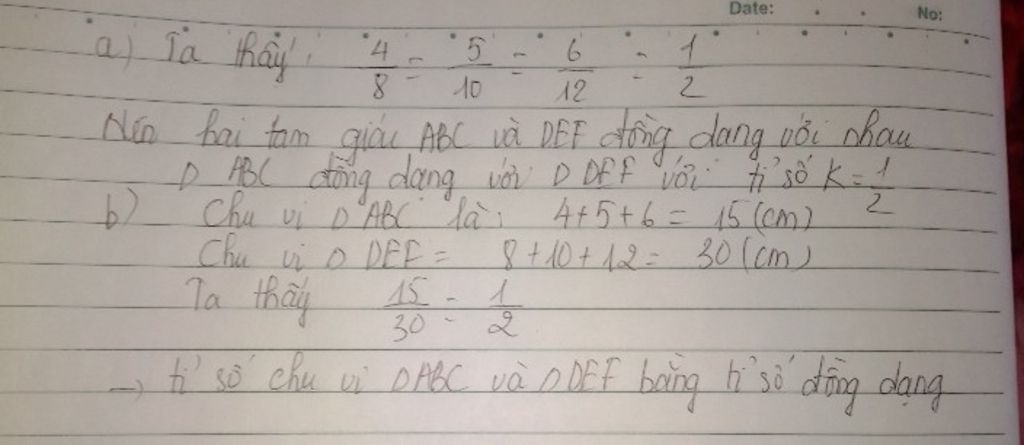 Date: No:
a) Ta thấy: 4/8 = 5/10 = 6/12 = 1/2
Nên hai tam giác ABC và DEF đồng dạng với nhau
Δ ABC đồng dạng với Δ DEF với tỉ số K = 1/2
b) Chu vi Δ ABC là: 4+5+6 = 15 (cm)
Chu vi Δ DEF = 8+10+12 = 30 (cm)
Ta thấy 15/30 = 1/2
→ tỉ số chu vi Δ ABC và Δ DEF bằng tỉ số đồng dạng